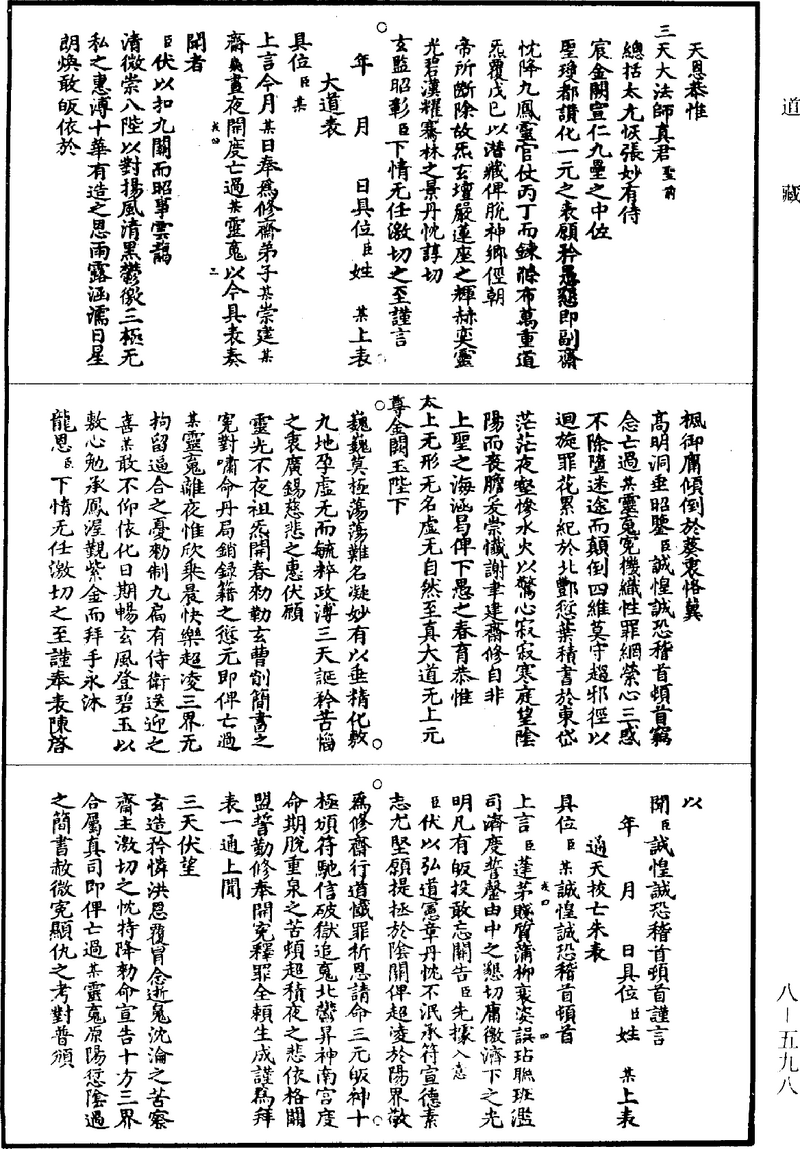 道藏
天恩恭惟
三天大法師真君聖前
總括太尢恢張妙有侍
宸金闕宣仁九壘之中位
聖琤都讚化一元之表願矜愚懇即副齋
忱降九鳳靈官仗丙丁而鍊滌布萬重道
炁覆戊巳以潛藏俾脫神鄉徑朝
帝所斷除故炁玄壇嚴蓮座之輝赫奕靈
光碧漢耀騫林之景丹忱諄切
玄監昭彰臣下情无任激切之至謹言
年 月 日具位臣姓 某上表
大道表
具位臣某
上言今月某日奉為修齋弟子某崇建某
齋幾晝夜開度亡過某靈䰟以今具表奏
聞者
臣伏以扣九關而昭事雲鵲
清微崇八陛以對揚風清黑鬱儌三極无
私之惠溥十華有造之恩雨露涵濡日星
朗煥敢皈依於
楓御庸傾倒於葵衷恪冀
高明洞垂昭鑒臣誠惶誠恐稽首頓首竊
念亡過某靈䰟冤機織性罪網縈心三惑
不除墮迷途而顛倒四維莫守趨邪徑以
迴旋罪花累紀於北酆愆葉積書於東岱
茫茫夜壑慘水火以驚心寂寂寒庭望陰
陽而喪膽爰崇懺謝聿建齋修自非
上聖之海涵曷俾下愚之春育恭惟
太上无形无名虛无自然至真大道无上元
尊金闕玉陛下
巍巍莫極蕩蕩難名凝妙有以垂精化敷
九地孕虛无而毓粹政溥三天誕矜苦惱
之衷廣錫慈悲之惠伏願
靈光不夜祖炁開春勑勒玄曹削簡書之
冤對嘯命丹局銷錄籍之愆元即俾亡過
某靈䰟離夜惟欣乘晨快樂超凌三界无
拘留逼合之憂勑制九扃有侍衛送迎之
喜某敢不仰依化日期暢玄風登碧玉以
敷心勉承鳳渥覲紫金而拜手永沐
龍恩臣下情无任激切之至謹奉表陳啓
以
聞臣誠惶誠恐稽首頓首謹言
年 月 日具位臣姓 某上表
通天拔亡朱表
具位臣某誠惶誠恐稽首頓首
上言臣蓬茅賤質蒲柳衰姿誤玷聯班濫
司濟度誓罄由中之懇切庸徼濟下之光
明凡有皈投敢忘關告臣先據入意
臣伏以弘道憲章丹忱不泯承符宣德素
志尤堅願提拯於陰關俾超凌於陽界敬
為修齋行道懺罪祈恩請命三元皈神十
極頒符馳信破獄追䰟北酆昇神南宮度
命期脫重泉之苦頓超積夜之悲依格關
盟誓勤修奉開冤釋罪全賴生成謹為拜
表一通上聞
三天伏望
玄造矜憐洪恩覆冒念逝䰟沈淪之苦察
齋主激切之忱特降勑命宣告十方三界
合屬真司即俾亡過某靈䰟原陽愆陰過
之簡書赦微冤顯仇之考對普頒
八—五九八